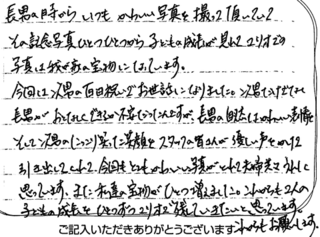 長男の時から いつも かわいい写真を 撮って頂いていて
その記念写真ひとつひとつから 子どもの成長が 見れて
写真は我が家の宝物になっています。
今回は 二男の百日祝いでお世話になりました。
長男が 不安でしたが、長男の かわいい表情
そして二男のにっこり笑った笑顔を スタッフの皆さんが 優しい声をかけて
引き出してくれて、今回もとてもかわいい写真がとれて夫婦共々うれしく
思っています。また 家宝の宝物が ひとつ増えました。これからも2人の
子どもの成長を ひとつずつ 残していきたいと思っています。
これからもお願いします。
ご記入いただきありがとうございます